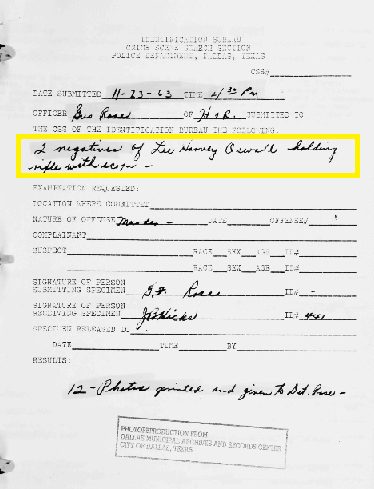 IDENTIFICATION BUREAU
CRIME SCENE SEARCH SECTION
POLICE DEPARTMENT, DALLAS, TEXAS
CSS#
DATE SUBMITTED 11-23-63 TIME 4/30 Pm
OFFICER Gus Rose OF H & R. SUBMITTED TO
THE CSS OF THE IDENTIFICATION BUREAU THE FOLLOWING:
2 negatives of Lee Harvey Oswald holding
rifle with
EXAMINATION REQUESTED:
LOCATION WHERE COMMITTED
NATURE OF OFFENSE Murder - DATE OFFENSE#
COMPLAINANT
SUSPECT RACE SEX AGE ID#
RACE SEX AGE ID#
SIGNATURE OF PERSON
SUBMITTING SPECIMEN G.F. Rose ID# -
SIGNATURE OF PERSON
RECEIVING SPECIMEN ID#
SPECIMEN RELEASED
DATE TIME BY
RESULTS:
12 - Photos printed and given to Det. Rose -
PHOTOREPRODUCTION FROM
DALLAS MUNICIPAL ARCHIVES AND RECORDS CENTER
CITY OF DALLAS, TEXAS